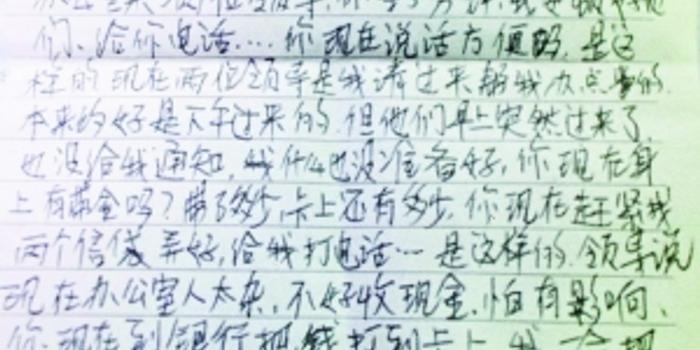 们、给你电话….你现在说话方便吗.是这
样的现在两位领导是我请过来帮我办点事的.
本来约好是下午过来的.但他们早上突然过来了
也没给我通知,我什么也没准备好,你现在身
上有带金吗?带了多少,卡上还有多少.你现在赶紧找
两个信封弄好,给我打电话…是这样的.领导说
现在办公室人太杂.不好收现金.怕有影响、
你现在到银行把钱打到卡上